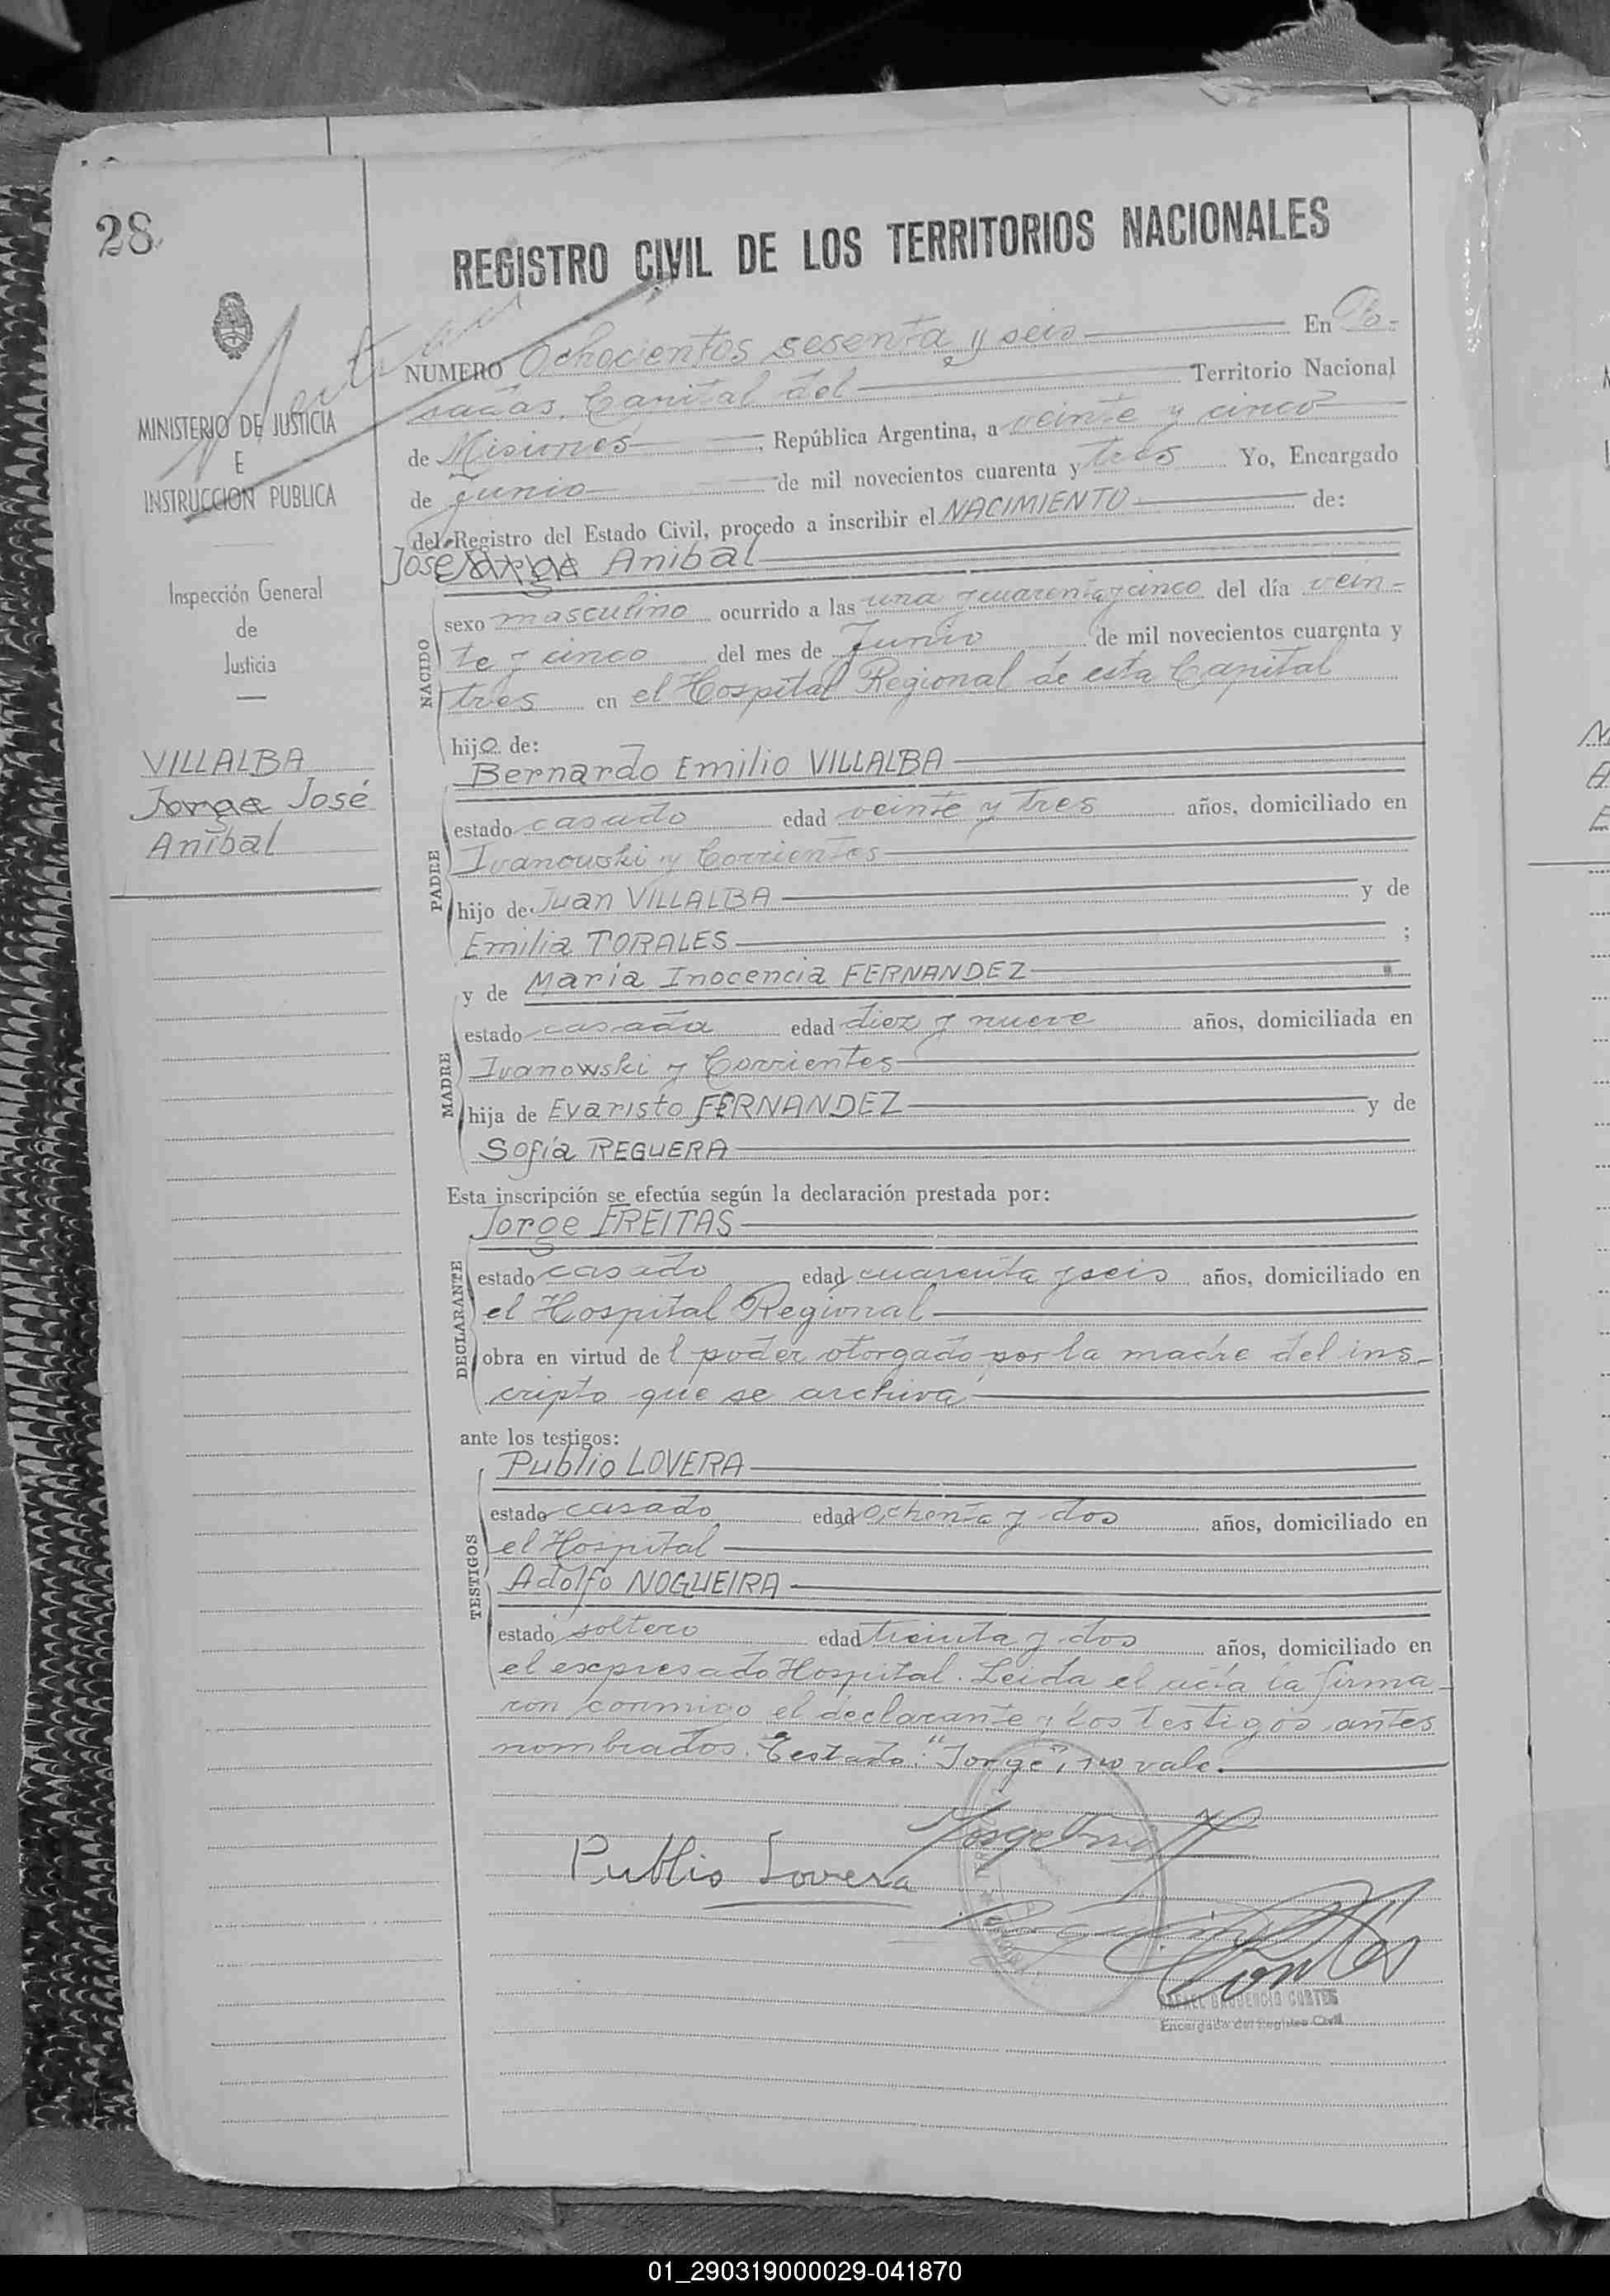 28
REGISTRO CIVIL DE LOS TERRITORIOS NACIONALES
MINISTERIO DE JUSTICIA
E
INSTRUCCION PUBLICA
Inspección General
de
Justicia
VILLALBA
Jorge José
Aníbal
NUMERO Ochocientos sesenta y seis En Po-
sadas, Capital del Territorio Nacional
de Misiones, República Argentina, a veinte y cinco
de Junio de mil novecientos cuarenta y tres Yo, Encargado
del Registro del Estado Civil, procedo a inscribir el NACIMIENTO de:
José Jorge Anibal
NACIDO
sexo masculino ocurrido a las una y cuarenta y cinco del día vein-
te y cinco del mes de Junio de mil novecientos cuarenta y
tres en el Hospital Regional de esta Capital
hijo de:
Bernardo Emilio VILLALBA
PADRE
estado casado edad veinte y tres años, domiciliado en
Ivanowski y Corrientes
hijo de Juan VILLALBA y de
Emilia TORALES ;
y de Maria Inocencia FERNANDEZ
MADRE
estado casada edad diez y nueve años, domiciliada en
Ivanowski y Corrientes
hija de Evaristo FERNANDEZ y de
Sofía REGUERA
Esta inscripción se efectúa según la declaración prestada por:
Jorge FREITAS
DECLARANTE
estado casado edad cuarenta y seis años, domiciliado en
el Hospital Regional
obra en virtud de l poder otorgado por la madre del ins-
cripto que se archiva
ante los testigos:
Publio LOVERA
TESTIGOS
estado casado edad ochenta y dos años, domiciliado en
el Hospital
Adolfo NOGUEIRA
estado soltero edad treinta y dos años, domiciliado en
el expresado Hospital. Leida el acta la firma-
ron conmigo el declarante y los testigos antes
nombrados. Testado: "Jorge", no vale.
Publio Lovera
RAFAEL GAUDENCIO CORTES
Encargado del Registro Civil
01_290319000029-041870